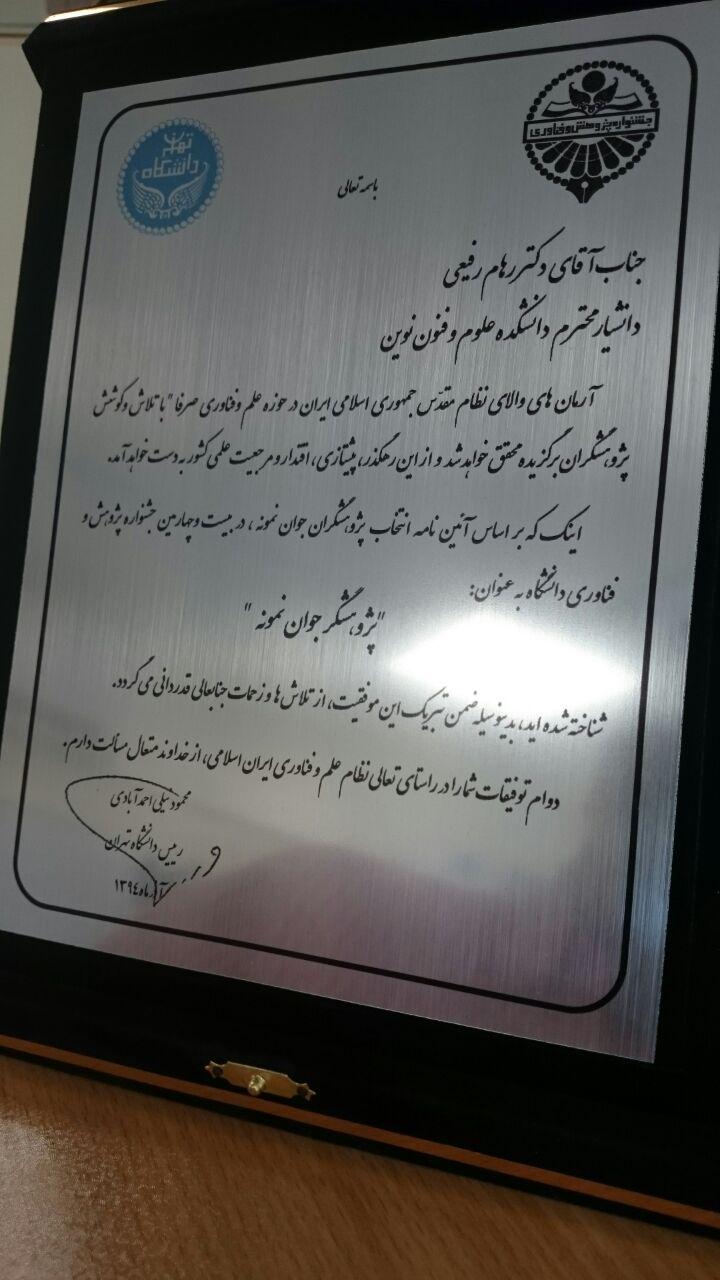 دانشگاه تهران
جشنواره پژوهش و فناوری
باسمه تعالی
جناب آقای دکتر رهام رفیعی
دانشیار محترم دانشکده علوم و فنون نوین
آرمان های والای نظام مقدّس جمهوری اسلامی ایران در حوزه علم و فناوری صرفا" با تلاش و کوشش
پژوهشگران برگزیده محقق خواهد شد و از این رهگذر، پیشتازی، اقتدار و مرجعیت علمی کشور به دست خواهد آمد.
اینک که بر اساس آئین نامه انتخاب پژوهشگران جوان نمونه، در بیست و چهارمین جشنواره پژوهش و
فناوری دانشگاه به عنوان:
"پژوهشگر جوان نمونه"
شناخته شده اید، بدینوسیله ضمن تبریک این موفقیت، از تلاش ها و زحمات جنابعالی قدردانی می گردد.
دوام توفیقات شما را در راستای تعالی نظام علم و فناوری ایران اسلامی، از خداوند متعال مسألت دارم.
محمود نیلی احمدآبادی
رییس دانشگاه تهران
آذر ماه ۱۳۹۴